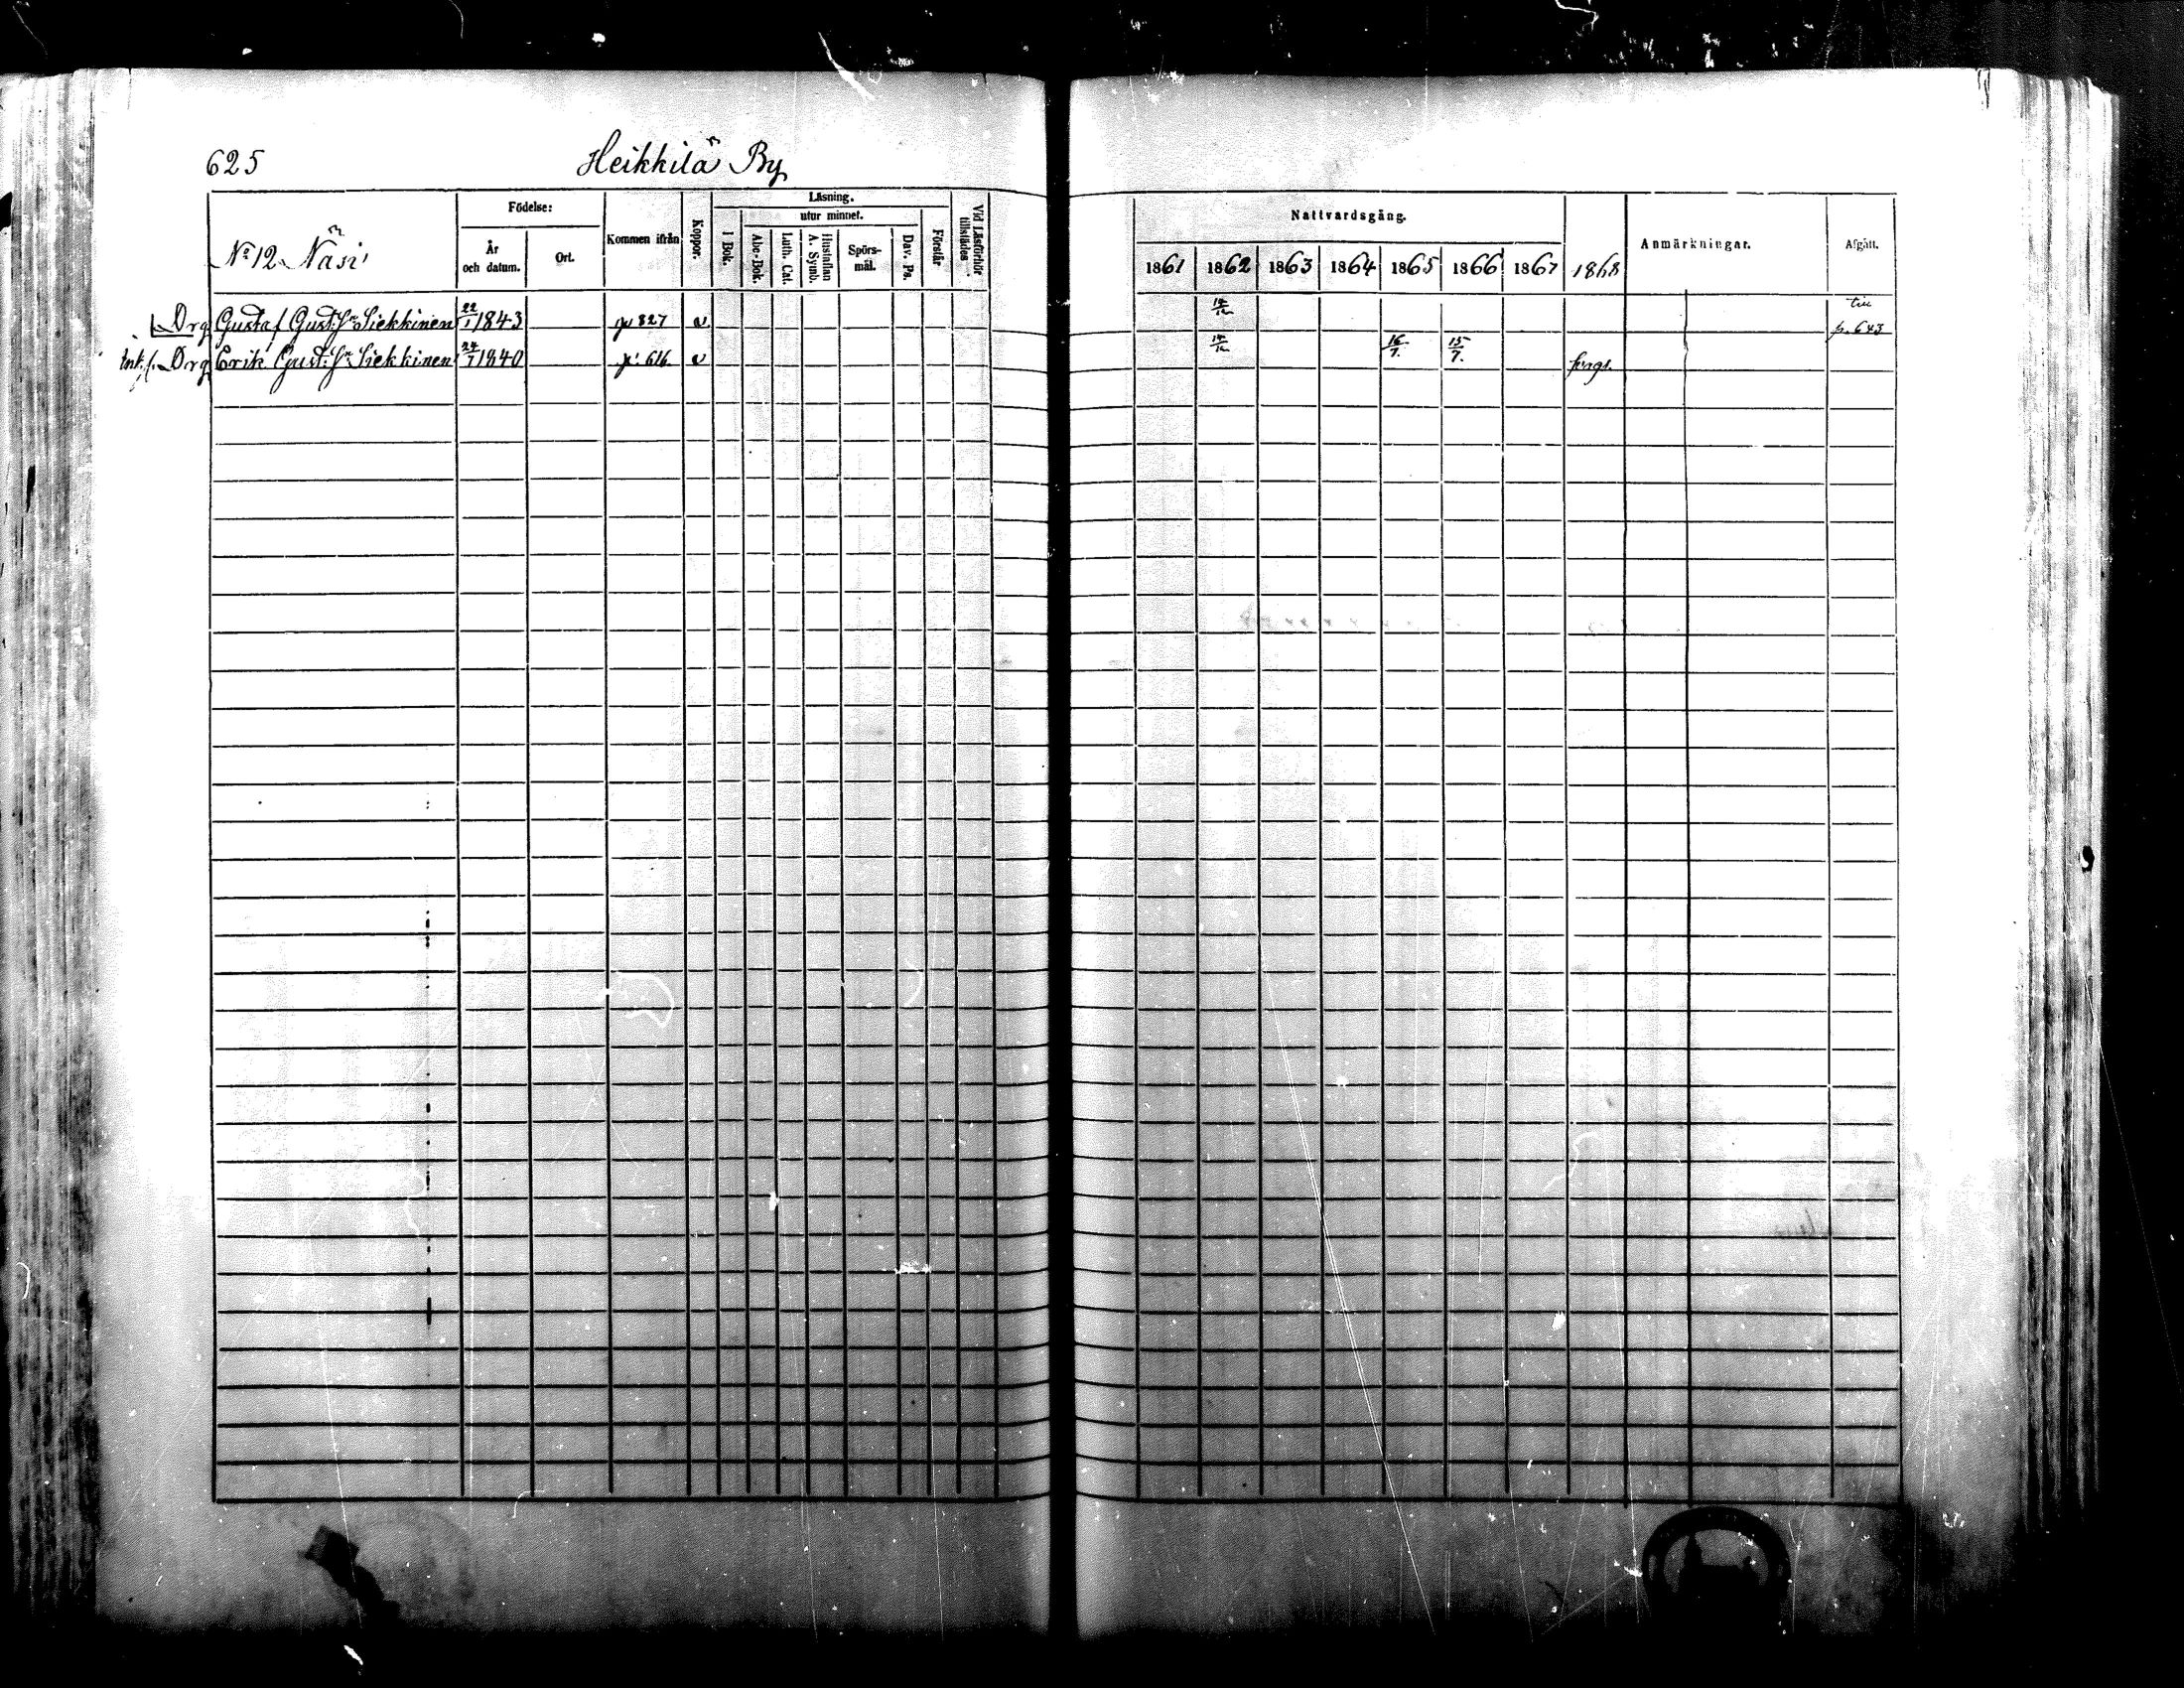 625 Heikkilä By
Födelse: Läsning. utur minnet.
År och datum. Ort. Kommen ifrån Koppor. I Bok. Abc-Bok. Luth. Cat. Hustaflan A. Symb. Spörs-mål. Dav. Ps. Förstår Vid Läsförhör tillstädes
No 12 Näsi
Drg Gustaf Gust:sn Siekkinen 22/1 1843 p 827 v
Drg Erik Gust:sn Siekkinen 24/1 1840 p. 616 v
Nattvardsgång. Anmärkningar. Afgått.
1861 1862 1863 1864 1865 1866 1867 1868
14/12 till p. 643
14/12 16/7. 15/7.